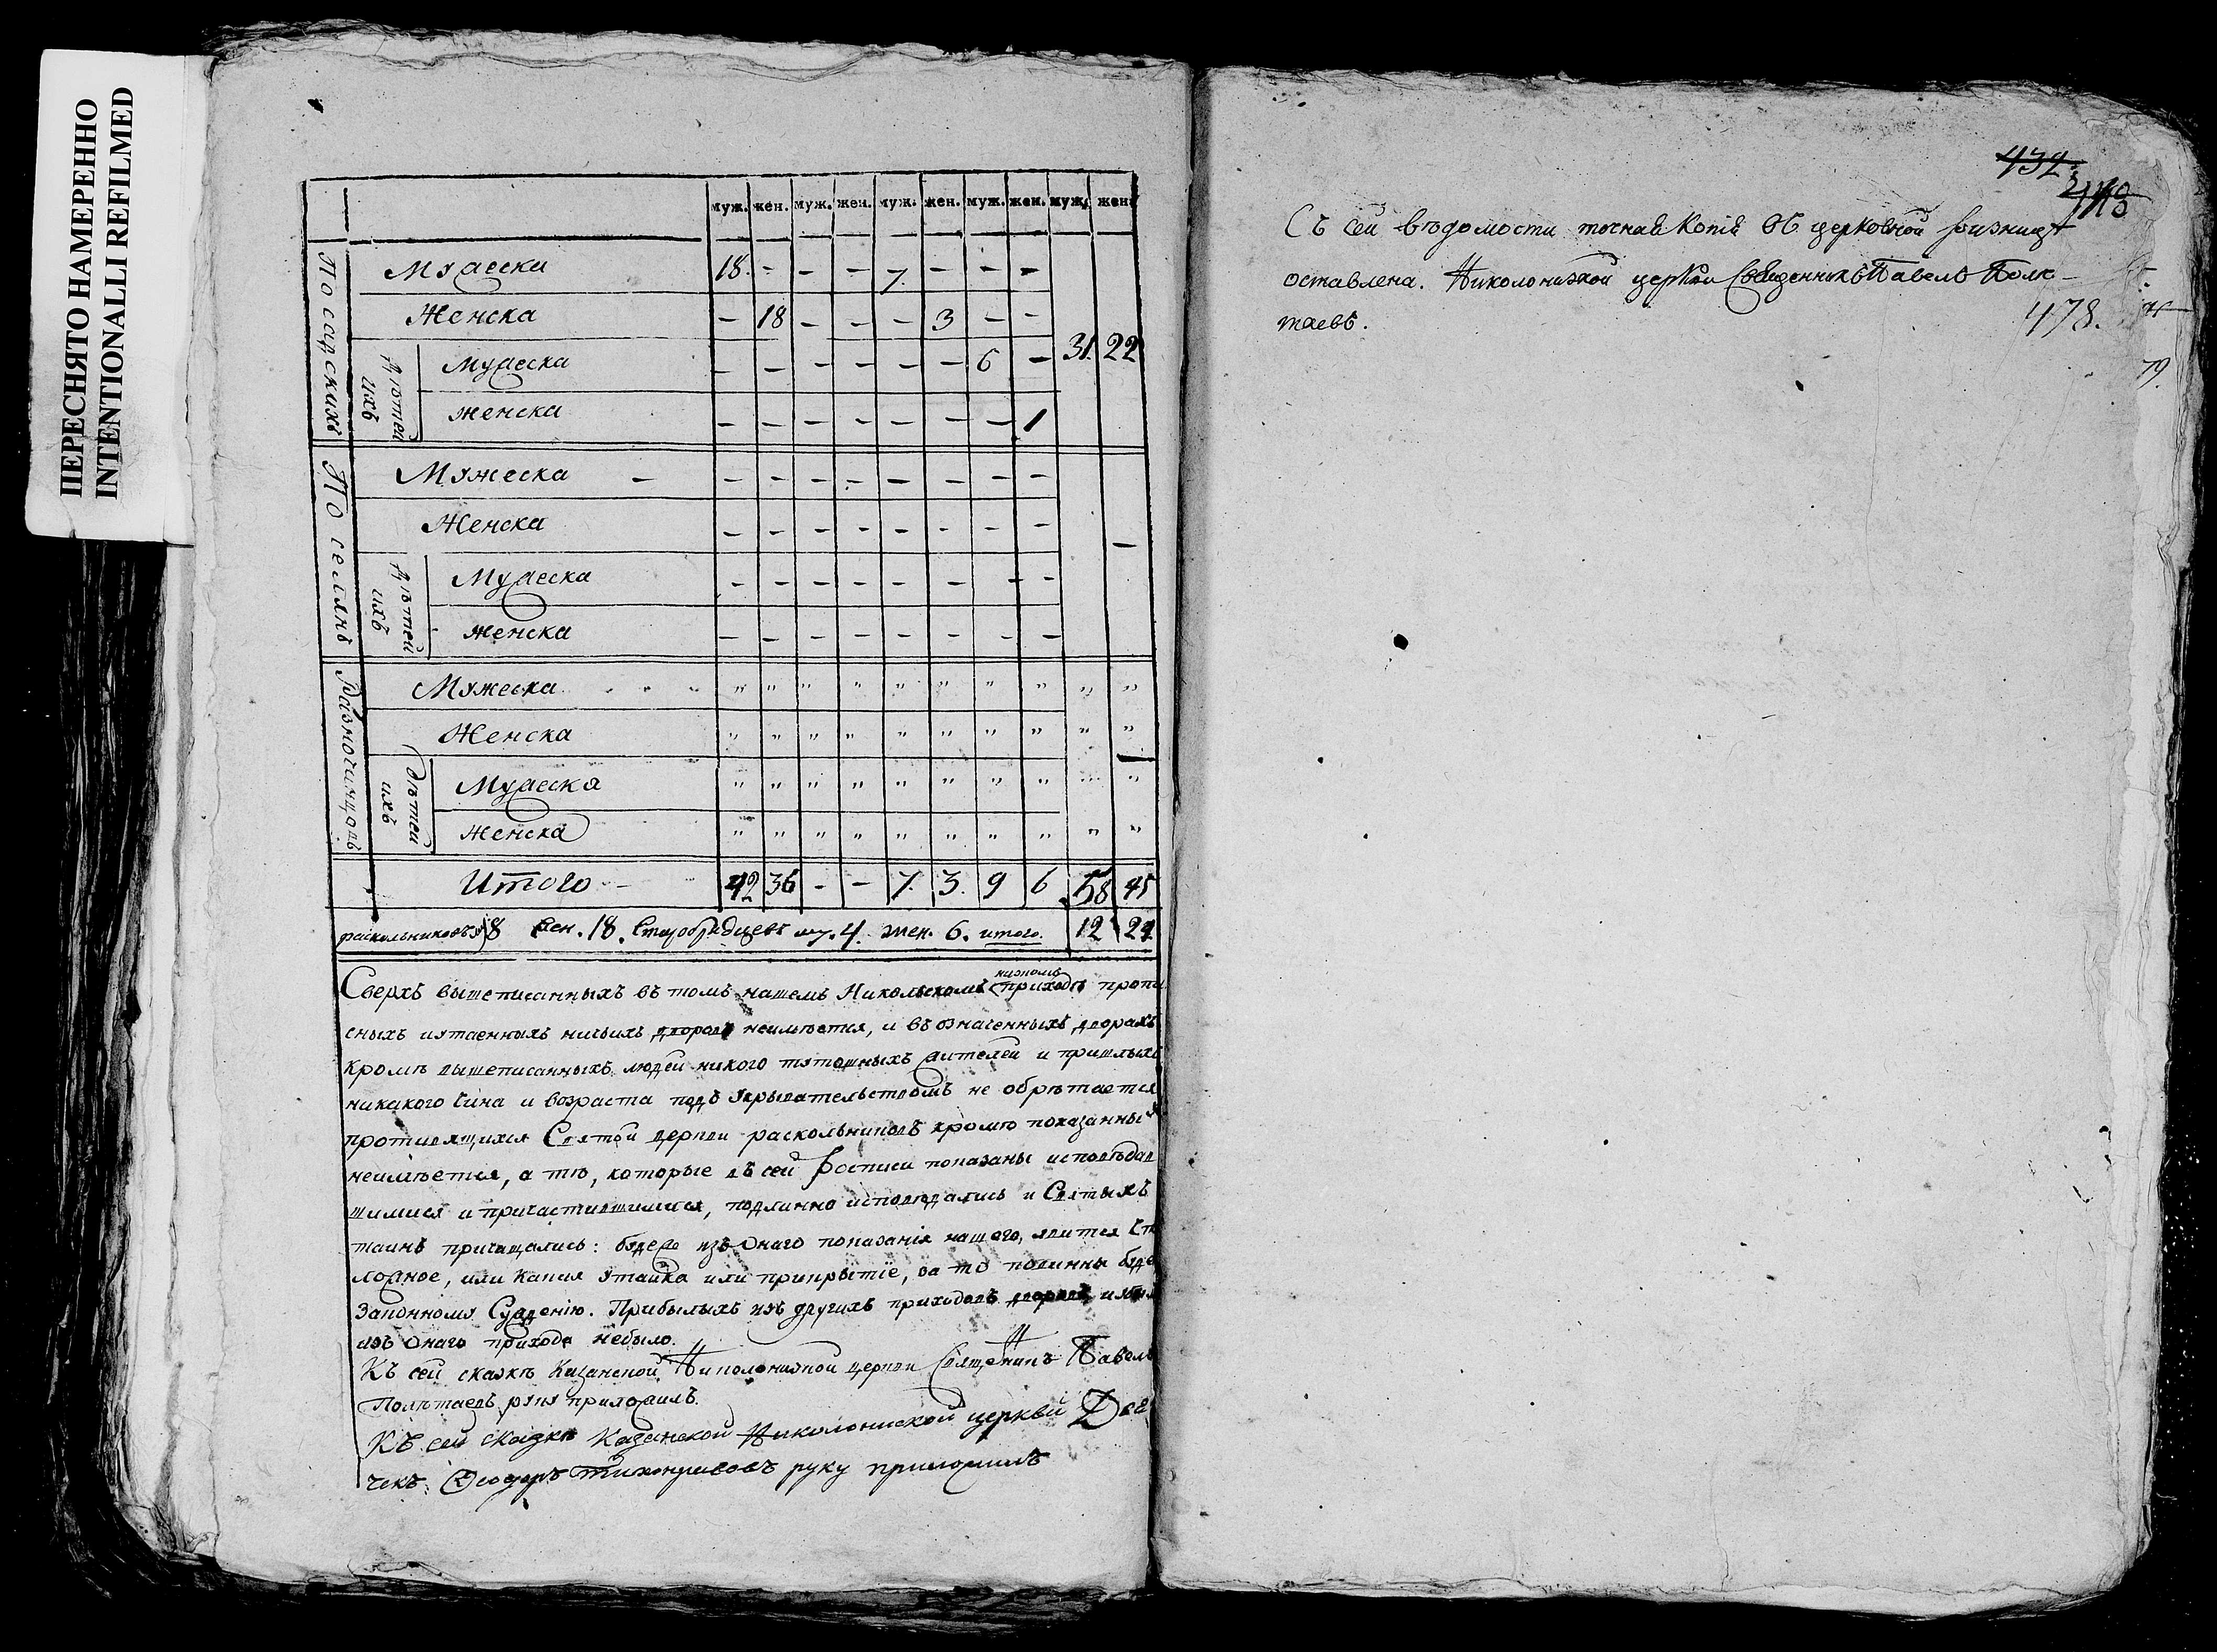 ПЕРЕСНЯТО НАМЕРЕННО
INTENTIONALLI REFILMED
муж. жен. муж. жен. муж. жен. муж. жен. муж. жен.
Посадскихъ
Мужеска 18. - - - 7. - - -
Женска - 18 - - - 3 - -
31. 22
Дѣтей ихъ
Мужеска - - - - - - 6 -
женска - - - - - - - 1
По селянъ
Мѹжеска - - - - - - - - -
Женска - - - - - - - -
Дѣтей ихъ
Мужеска - - - - - - - -
женска - - - - - - - -
Разночинцовъ
Мѹжеска " " " " " " " " " "
Женска " " " " " " " " " "
дѣтей ихъ
Мужеска " " " " " " " " " "
женска " " " " " " " " " "
Итого - 42 36 - - 7. 3. 9 6 58 45
раскольниковъ 8 жен. 18. Старобрядцевъ му. 4. жен. 6. итого. 12 24
низкомъ
Сверхъ вышеписанныхъ въ томъ нашемъ Никольскомъ приходѣ пропи
сныхъ иѹтаенныхъ ничьихъ дворовъ неимѣется, и въ означенныхъ дворахъ
кромѣ вышеписанныхъ людей никого тѹтошныхъ жителей и пришлыхъ
никакого чина и возраста подъ ѹкрывательствомъ не обрѣтается
противящихся Святой церкви раскольниковъ кромѣ показанны
неимѣется, а тѣ, которые въ сей росписи показаны исповѣдав
шимися и причастившимися, подлинно исповѣдались и Святыхъ
таинъ причащались: бѹдеже изъ Онаго показанія нашего, явится
ложное, или какая ѹтайка или прикрытїе, за то повинны бѹде
Законномѹ Сужденію. Прибылыхъ изъ другихъ приходовъ
изъ Онаго прихода небыло.
Къ сей сказкѣ Казанской Николонизкой церкви Священникъ Павелъ
Полетаевъ рѹкѹ приложилъ.
Къ сей сказке Казанской Николониской церкви Дья
чекъ Ѳеодоръ руку приложилъ
432
Съ сей вѣдомости точная копія въ церковной ризницѣ
оставлена. Николонизкой церкви Священникъ Павелъ Поле-
таевъ.
478.
79.